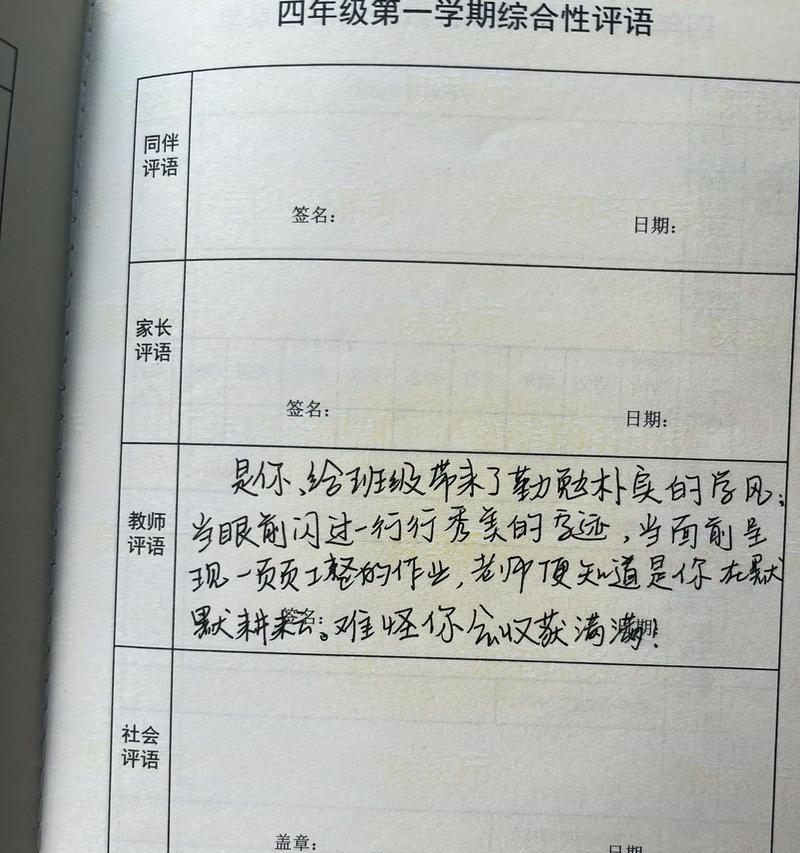 四年级第一学期综合性评语
同伴
评语
签名：
日期：
家长
评语
签名：
日期：
教师
评语
是你、给班级带来了勤勉朴实的学风；
当眼前闪过一行行秀美的字迹，当面前呈
现一页页工整的作业，老师便知道是你在默
默耕耘。难怪你会收获满满！
签名：
日期：
社会
评语
盖章：
日期